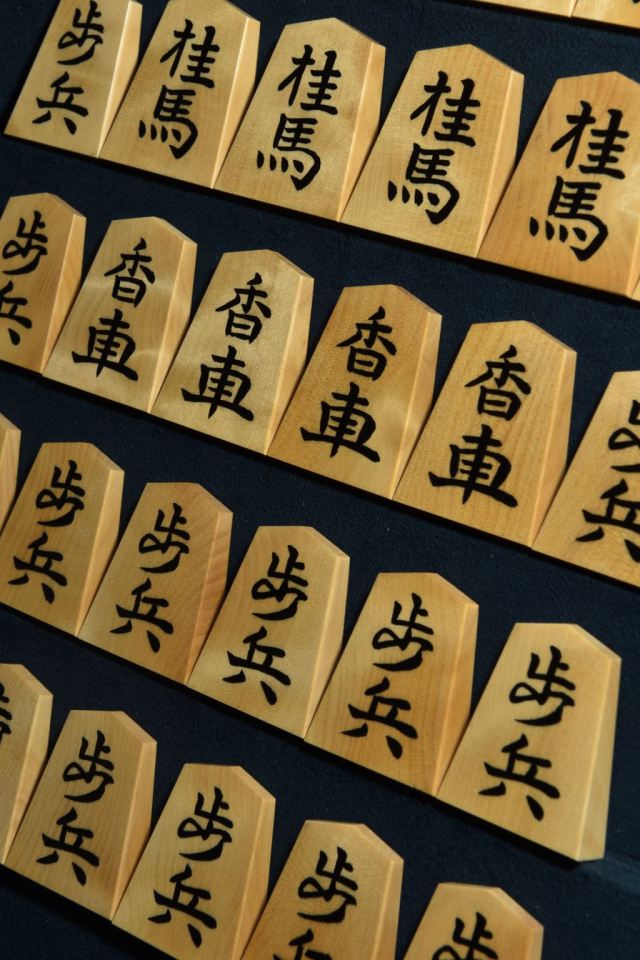 歩兵
桂馬
桂馬
桂馬
桂馬
歩兵
香車
香車
香車
香車
歩兵
歩兵
歩兵
歩兵
歩兵
歩兵
歩兵
歩兵
歩兵
歩